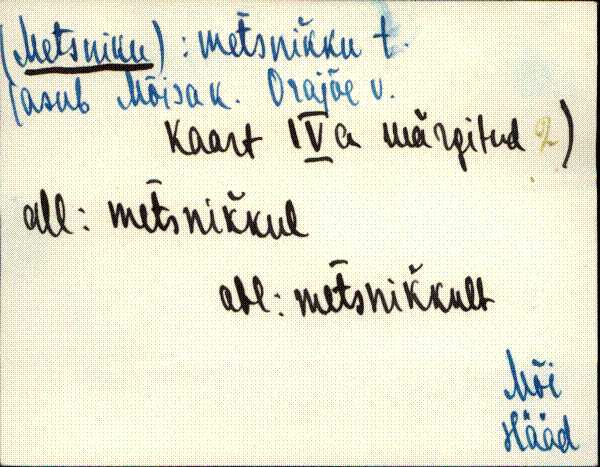 (Metsniku) : met̆snik̆ku t.
(asub Mõisa k. Orajõe v.
Kaart IVa märgitud 2)
all: met̆snik̆kul
abl: met̆snik̆kult
Mõi
Hääd